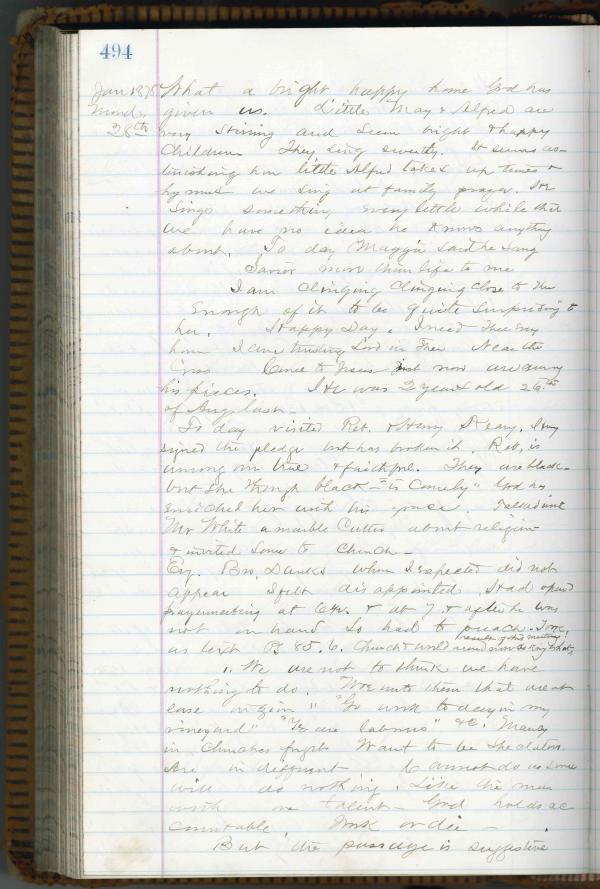 494
Jan 1878 What a bright happy home God has
Mond. given us. Little May & Alfred are
28th very stirring and seem bright & happy
children They sing sweetly. It seems as-
tonishing how little Alfred takes up tunes &
hymns we sing at family prayer. He
sings something every little while that
we have no idea he knows anything
about. To day Maggie said he sang
Savior more than life to me
I am clinging clinging close to Thee
Enough of it to be quite surprising to
her. Happy Day. I need Thee every
hour I am trusting Lord in Thee Near the
Cross Come to Jesus just now are among
his pieces. He was 2 years old 26th
of Aug. last.
To day visited Reb. & Henry Deary. Hny
signed the pledge but has broken it. Reb. is
among our true & faithful. They are black-
but she though black "is comely" God has
enriched her with his grace. Talked with
Mr White a marble cutter about religion
& invited some to church -
Eg. Bro. Danks whom I expected did not
appear I felt disappointed. Had opened
prayermeeting at 6 1/2. & at 7 & after he was
not on hand so had to preach. Took
as text Ps 85.6. Church & world
results of this meeting
"We are not to think we have
nothing to do. "Woe unto them that are at
ease in zion" "Go work to day in my
vineyard" "Ye are laborers" &c. Many
in churches forget Want to be spectators.
Are indifferent I cannot do as some
will do nothing. Like the man
with one talent - God holds ac
countable. Work or die -
But the passage is suggestive